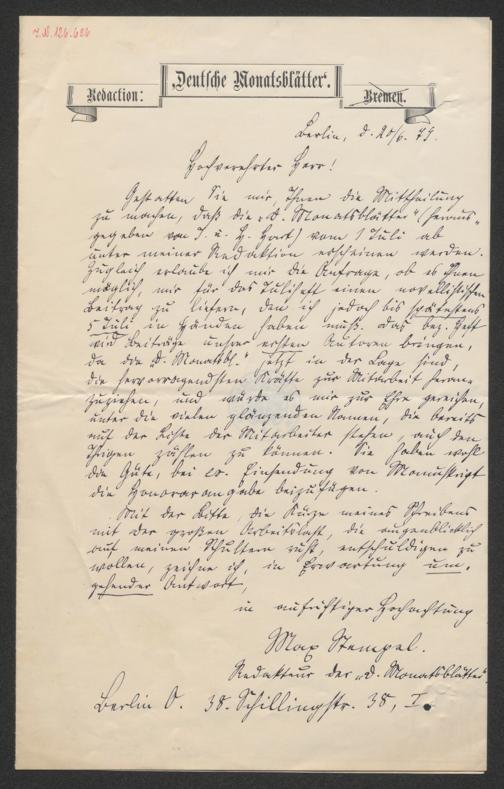 I.N. 126.626
„Deutsche Monatsblätter“.
Redaction:
Bremen.
Berlin, d. 20/6. 79.
Hochverehrter Herr!
Gestatten Sie mir, Ihnen die Mittheilung
zu machen, daß die „D. Monatsblätter“ (heraus-
gegeben von H. u. J. Hart) vom 1 Juli ab
unter meiner Redaktion erscheinen werden.
Zugleich erlaube ich mir die Anfrage, ob es Ihnen
möglich, mir für das Juliheft einen novellistischen
Beitrag zu liefern, den ich jedoch bis spätestens
5 Juli in Händen haben muß. Das bez. Heft
wird Beiträge unsrer ersten Autoren bringen,
da die „D. Monatsbl.“ jetzt in der Lage sind,
die hervorragendsten Kräfte zur Mitarbeit heran-
zuziehen, und würde es mir zur Ehre gereichen,
unter die vielen glänzenden Namen, die bereits
auf der Liste der Mitarbeiter stehen, auch den
Ihrigen zählen zu können. Sie haben wohl
die Güte, bei ev. Einsendung von Manuskript
die Honorarangabe beizufügen.
Mit der Bitte, die Kürze meines Schreibens
mit der großen Arbeitslast, die augenblicklich
auf meinen Schultern ruht, entschuldigen zu
wollen, zeichne ich, in Erwartung um-
gehender Antwort,
in aufrichtiger Hochachtung
Max Stempel.
Redakteur der „D. Monatsblätter“
Berlin O. 38. Schillingstr. 38, I.